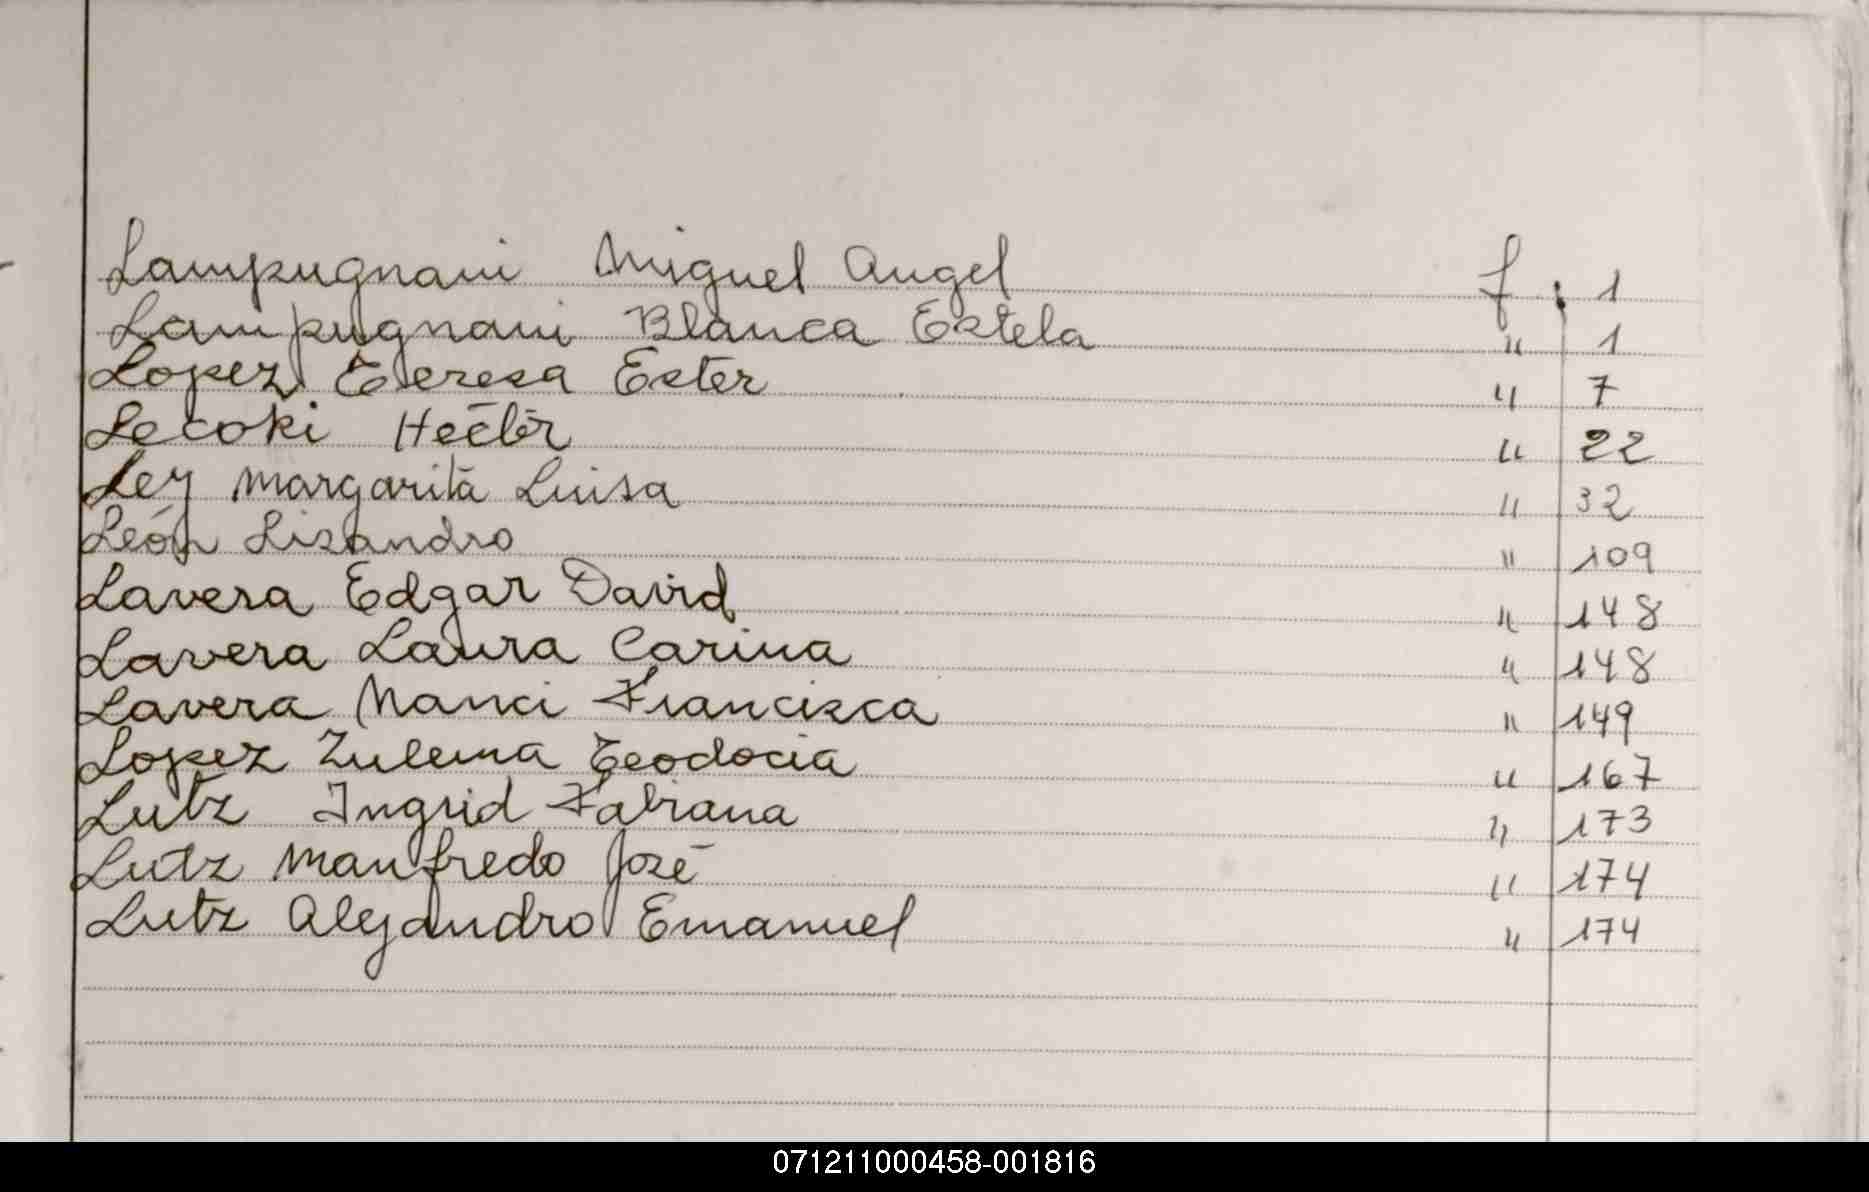 Lampugnani Miguel Angel f. 1
Lampugnani Blanca Estela " 1
Lopez Teresa Ester " 7
Lecoki Hector " 22
Ley Margarita Luisa " 32
León Lisandro " 109
Lavera Edgar David " 148
Lavera Laura Carina " 148
Lavera Nanci Francisca " 149
Lopez Zulema Teodocia " 167
Lutz Ingrid Fabiana " 173
Lutz Manfredo José " 174
Lutz Alejandro Emanuel " 174
071211000458-001816